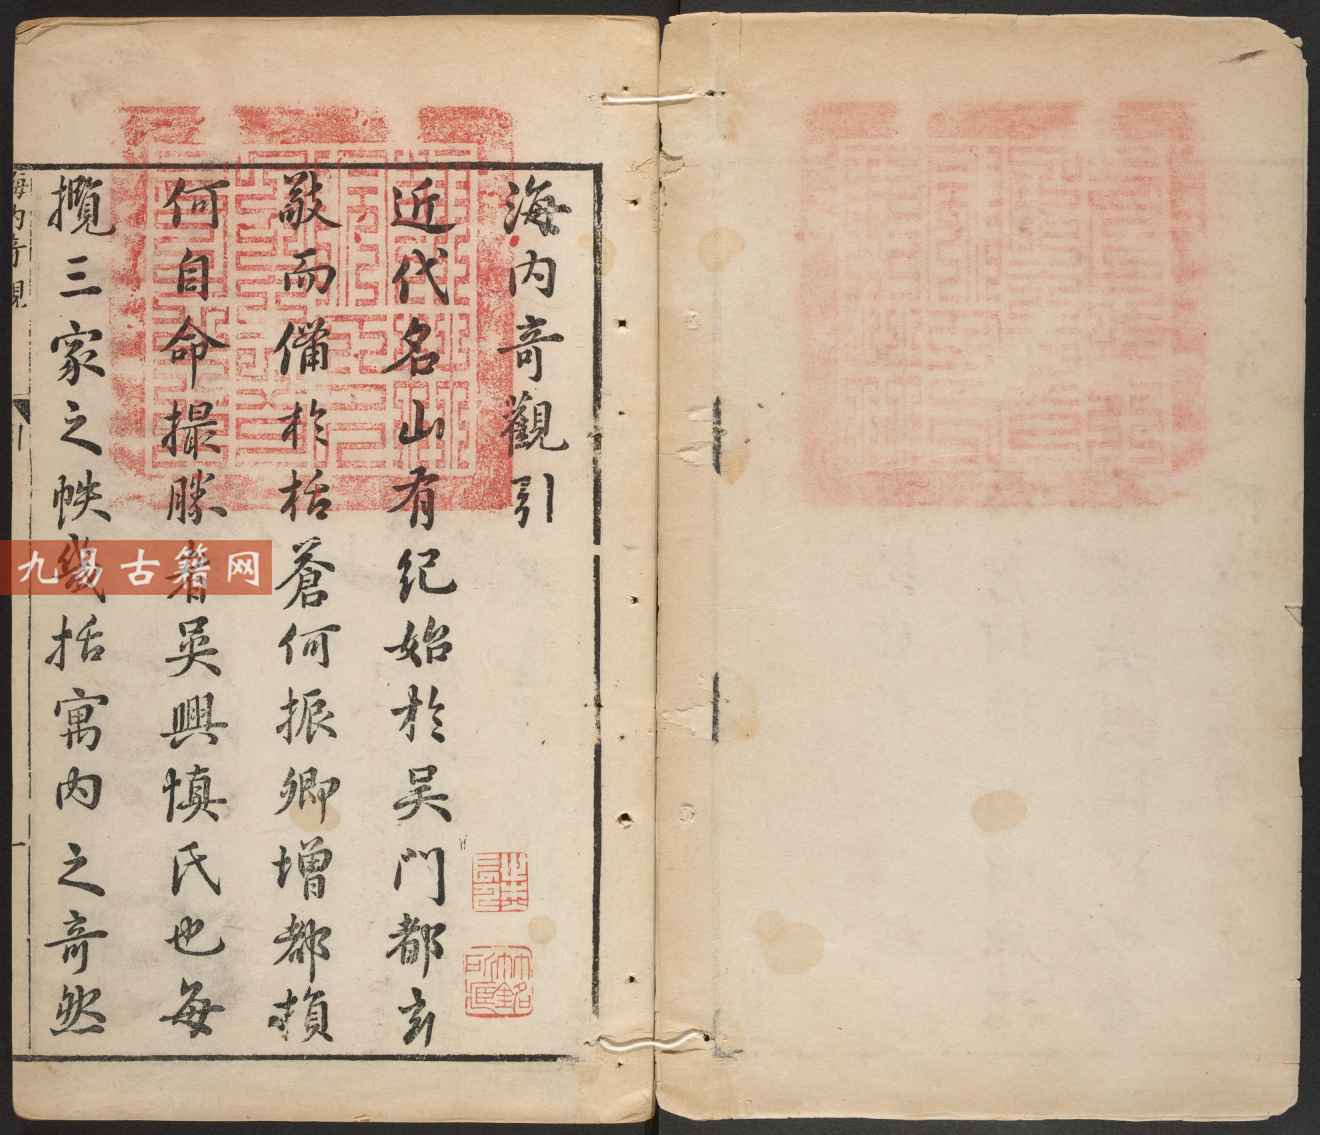 海内奇觀引
近代名山有紀始於吴門都玄
敲而僃於栝蒼何振卿增都損
何自命撮勝者吳興慎氏也每
攬三家之帙幾括寓内之奇然
海内奇觀
九易古籍网